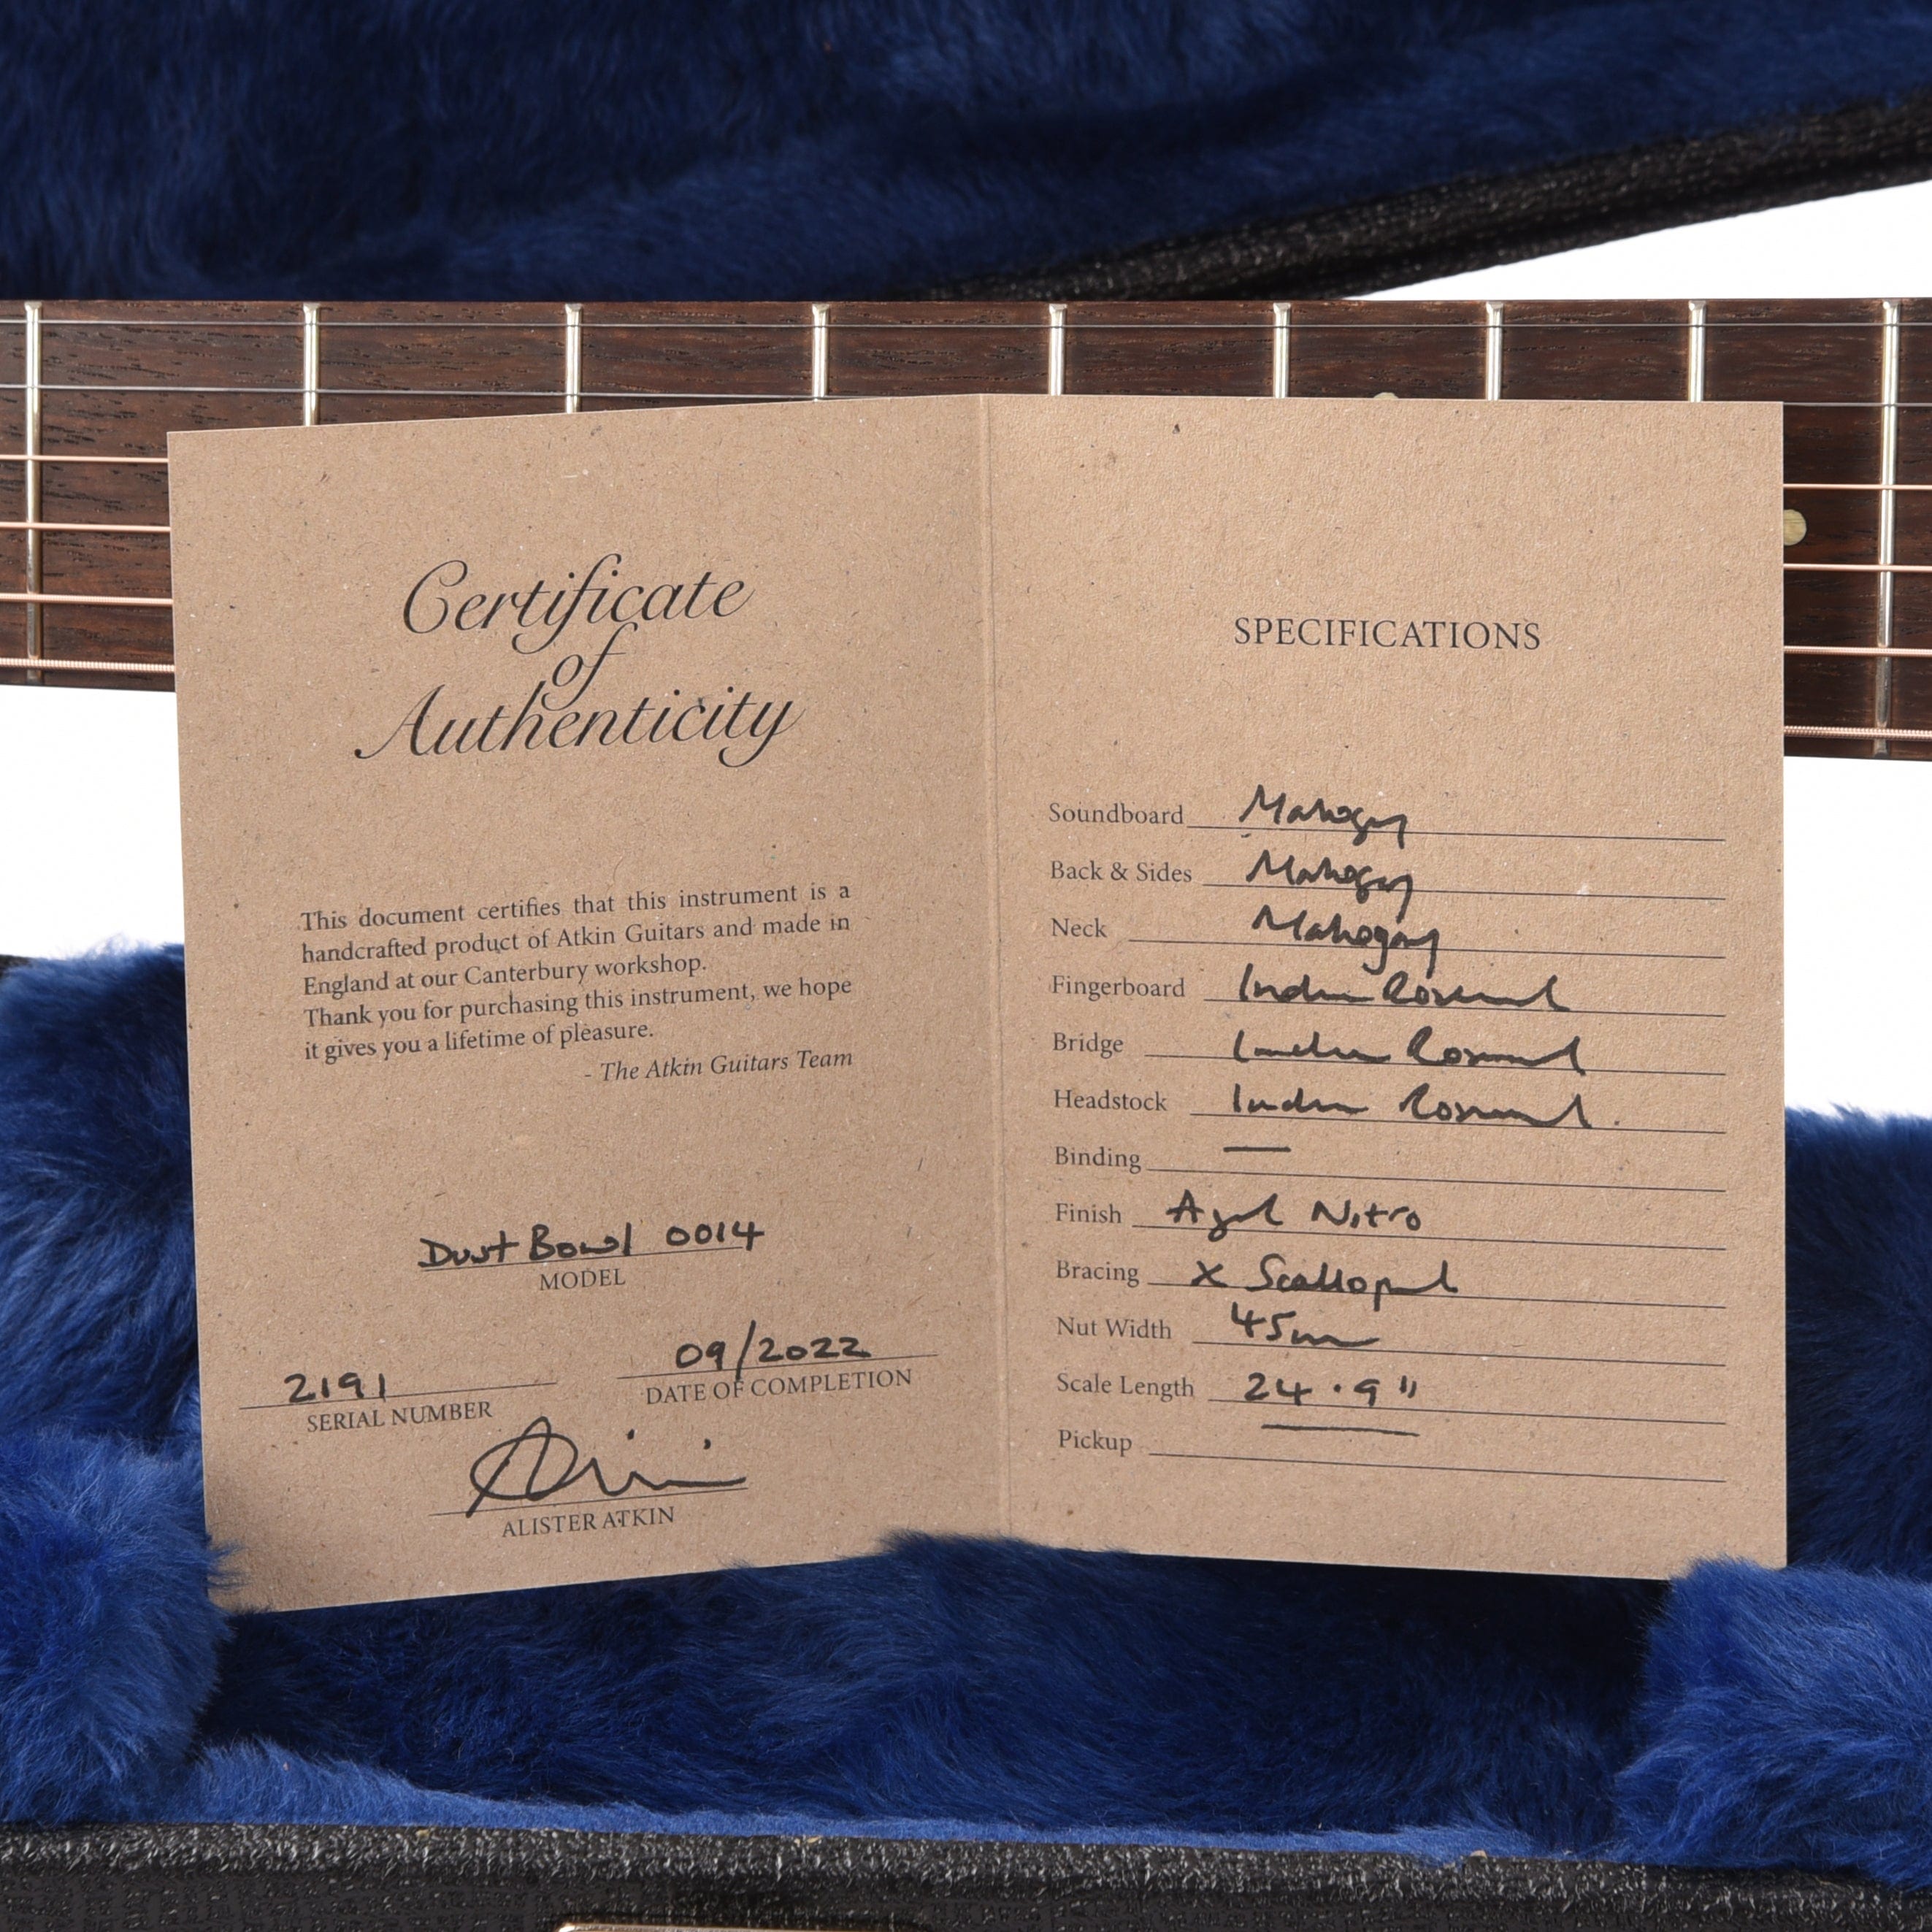 Certificate
of
Authenticity
This document certifies that this instrument is a
handcrafted product of Atkin Guitars and made in
England at our Canterbury workshop.
Thank you for purchasing this instrument, we hope
it gives you a lifetime of pleasure.
- The Atkin Guitars Team
Dust Bowl 0014
MODEL
2191
SERIAL NUMBER
09/2022
DATE OF COMPLETION
ALISTER ATKIN
SPECIFICATIONS
Soundboard Mahogany
Back & Sides Mahogany
Neck Mahogany
Fingerboard Indian Rosewood
Bridge Indian Rosewood
Headstock Indian Rosewood.
Binding —
Finish Aged Nitro
Bracing X Scalloped
Nut Width 45mm
Scale Length 24.9"
Pickup —